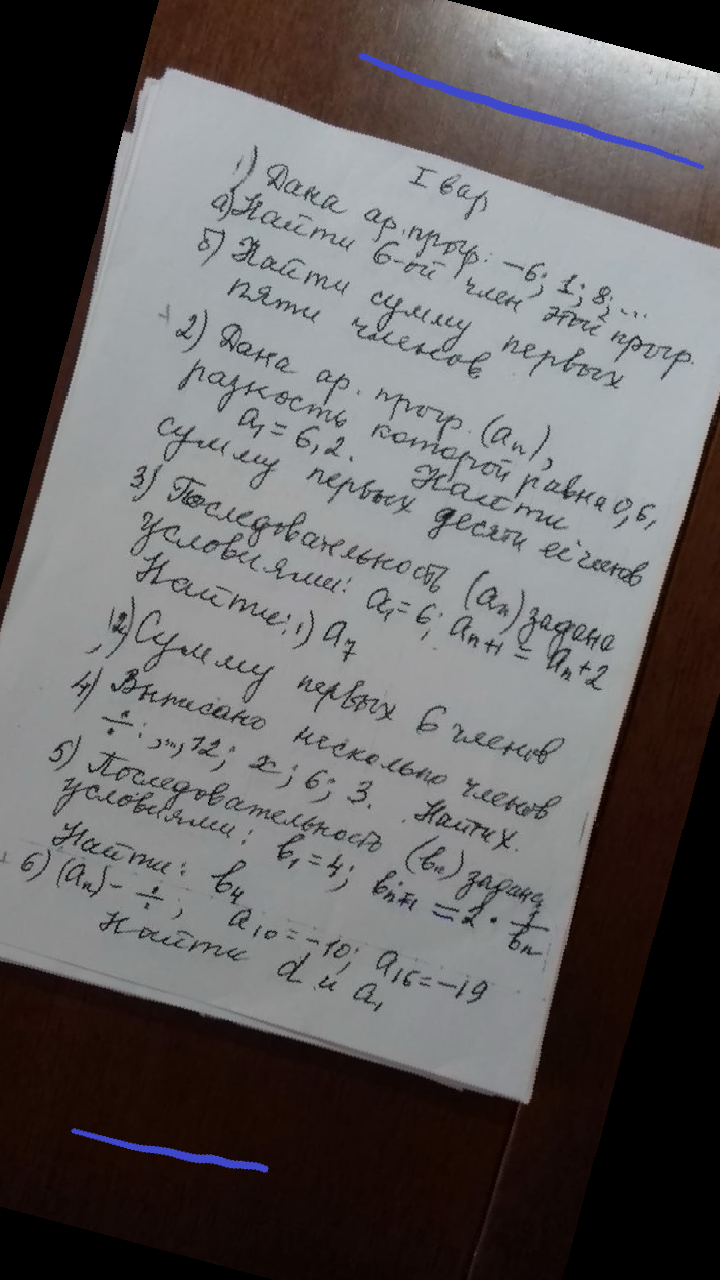 I вар
1) Дана ар. прогр: -6; 1; 8; ...
а) Найти 6-ой член этой прогр.
б) Найти сумму первых
пяти членов
2) Дана ар. прогр. (an),
разность которой равна 0,6,
a1 = 6,2. Найти
сумму первых десяти её членов
3) Последовательность (an) задана
условиями: a1 = 6; an+1 = an + 2
Найти: 1) a7
2) Сумму первых 6 членов
4) Выписано несколько членов
÷: ,..., 12; x; 6; 3. Найти x.
5) Последовательность (bn) задана
условиями: b1 = 4; bn+1 = 2 · 1/bn
Найти: b4
6) (an) - ÷; a10 = -10; a16 = -19
Найти d и a1